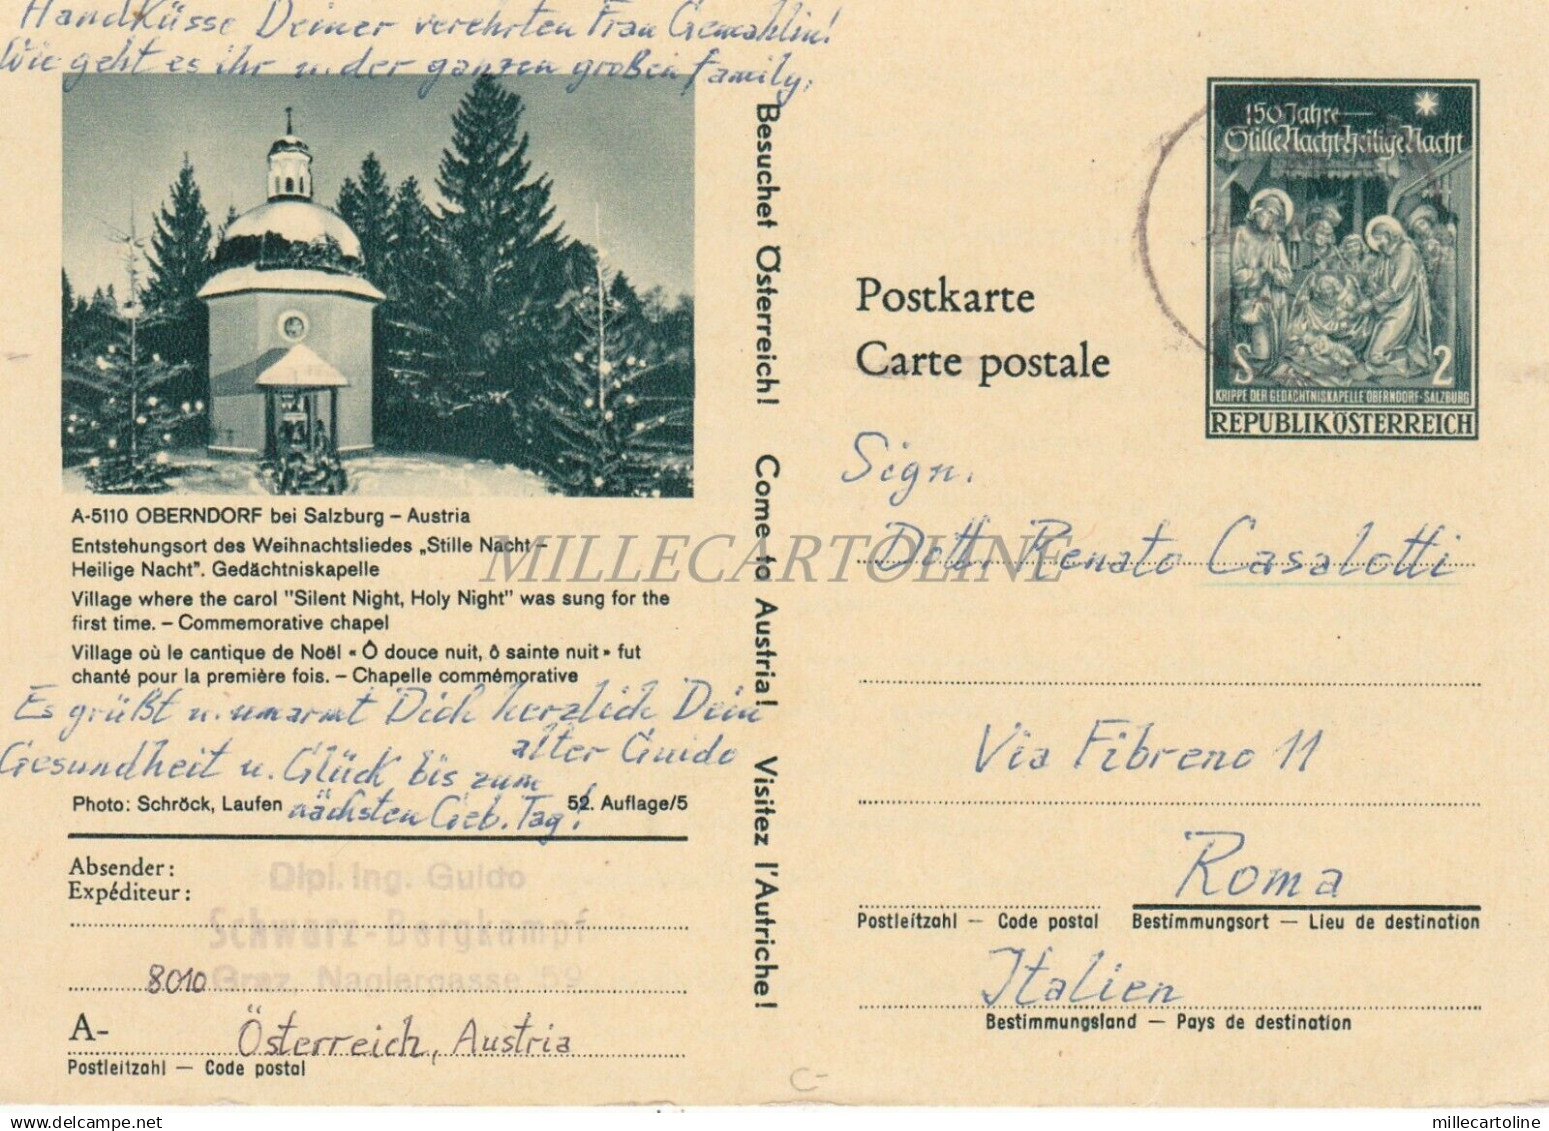 HandKüsse Deiner verehrten Frau Gemahlin!
Wie geht es ihr u. der ganzen großen family,
A-5110 OBERNDORF bei Salzburg – Austria
Entstehungsort des Weihnachtsliedes „Stille Nacht –
Heilige Nacht". Gedächtniskapelle
Village where the carol "Silent Night, Holy Night" was sung for the
first time. – Commemorative chapel
Village où le cantique de Noël « Ô douce nuit, ô sainte nuit » fut
chanté pour la première fois. – Chapelle commémorative
Es grüßt u. umarmt Dich herzlich Dein
alter Guido
Gesundheit u. Glück bis zum
nächsten Geb. Tag!
Photo: Schröck, Laufen
52. Auflage/5
Absender:
Expéditeur:
Dipl. Ing. Guido
Schwarz-Bergkampf
8010 Graz, Naglergasse 59
A- Österreich, Austria
Postleitzahl — Code postal
Besuchet Österreich! Come to Austria! Visitez l'Autriche!
150 Jahre
Stille Nacht-Heilige Nacht
S 2
KRIPPE DER GEDÄCHTNISKAPELLE OBERNDORF-SALZBURG
REPUBLIK ÖSTERREICH
Postkarte
Carte postale
Sign.
Dott. Renato Casalotti
Via Fibreno 11
Roma
Postleitzahl — Code postal
Bestimmungsort — Lieu de destination
Italien
Bestimmungsland — Pays de destination
C-
MILLECARTOLINE
delcampe.net
millecartoline